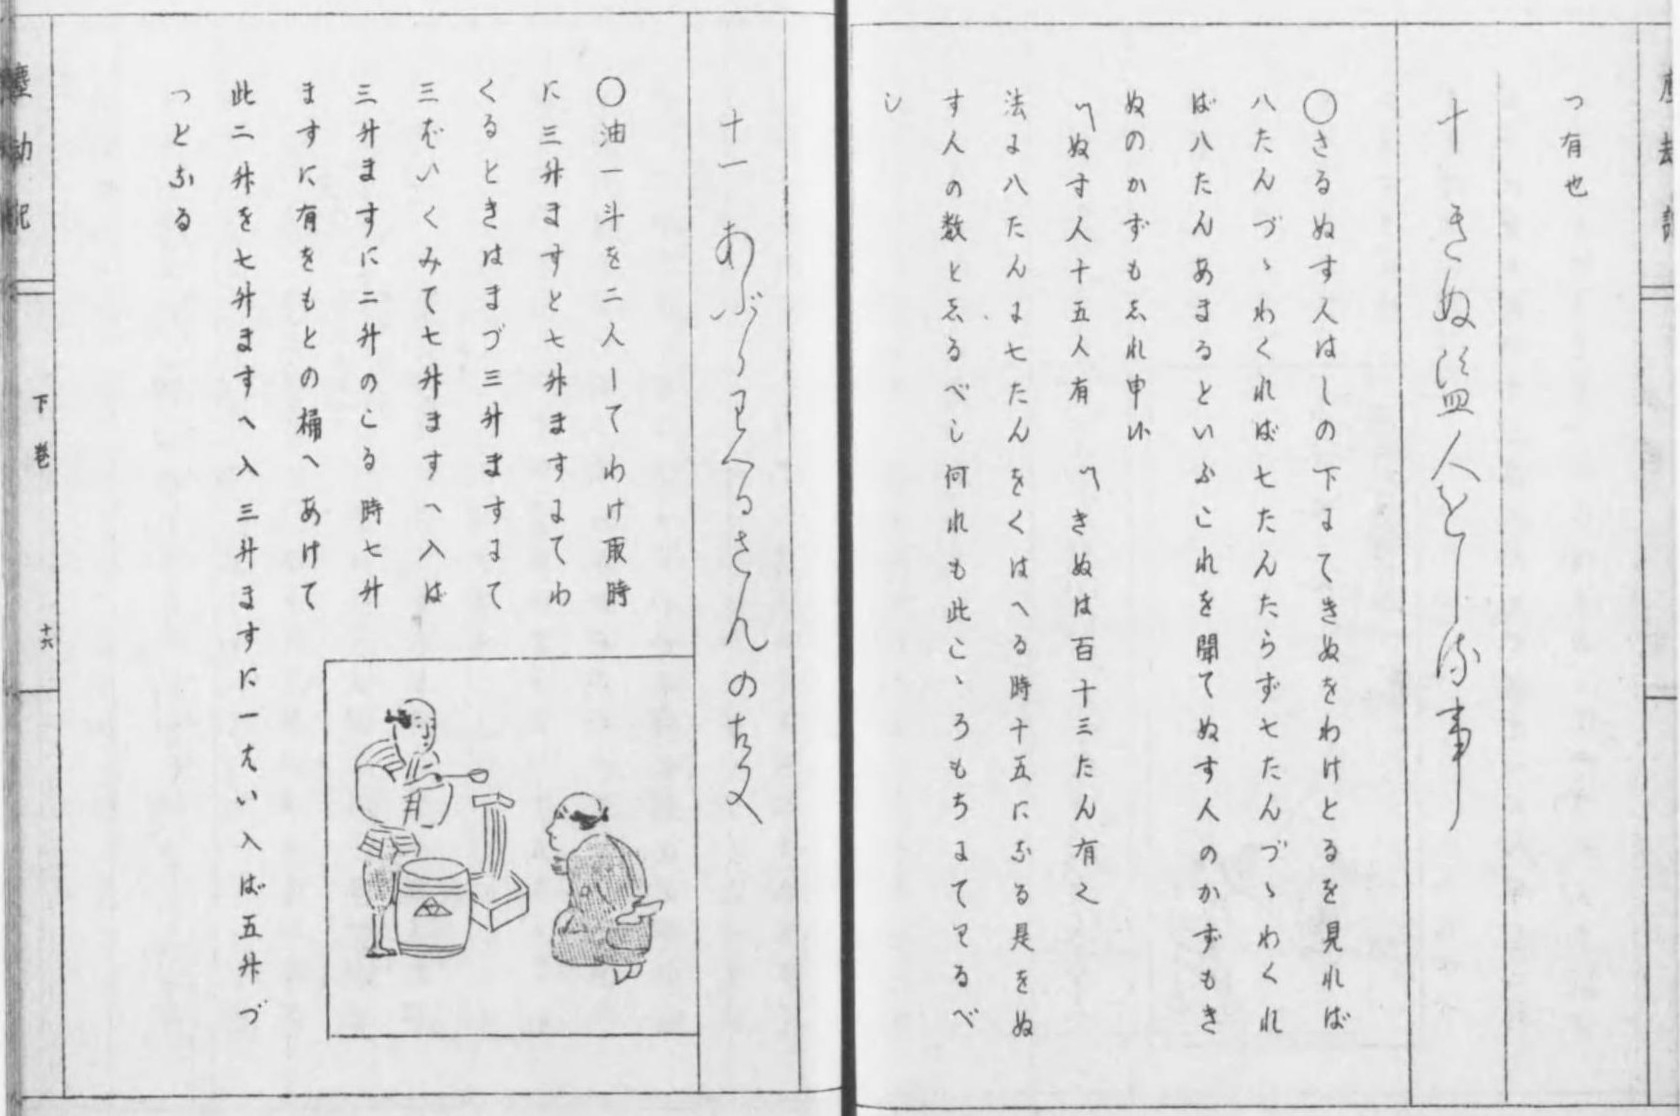 塵劫記
つ有也
十 きぬ盗人をしる事
〇さるぬす人はしの下にてきぬをわけとるを見れば
八たんづゝわくれば七たんたらず七たんづゝわくれ
ば八たんあまるといふこれを聞てぬす人のかずもき
ぬのかずもしれ申候
〽ぬす人十五人有 〽きぬは百十三たん有之
法に八たんに七たんをくはへる時十五になる是をぬ
す人の数としるべし何れも此こゝろもちにてしるべ
し
十一 あぶらわくるさんの
〇油一斗を二人してわけ取時
に三升ますと七升ますにてわ
くるときはまづ三升ますにて
三ばいくみて七升ますへ入ば
三升ますに二升のこる時七升
ますに有をもとの桶へあけて
此二升を七升ますへ入三升ますに一ぱい入ば五升づ
つとなる
塵劫記
下巻
十六